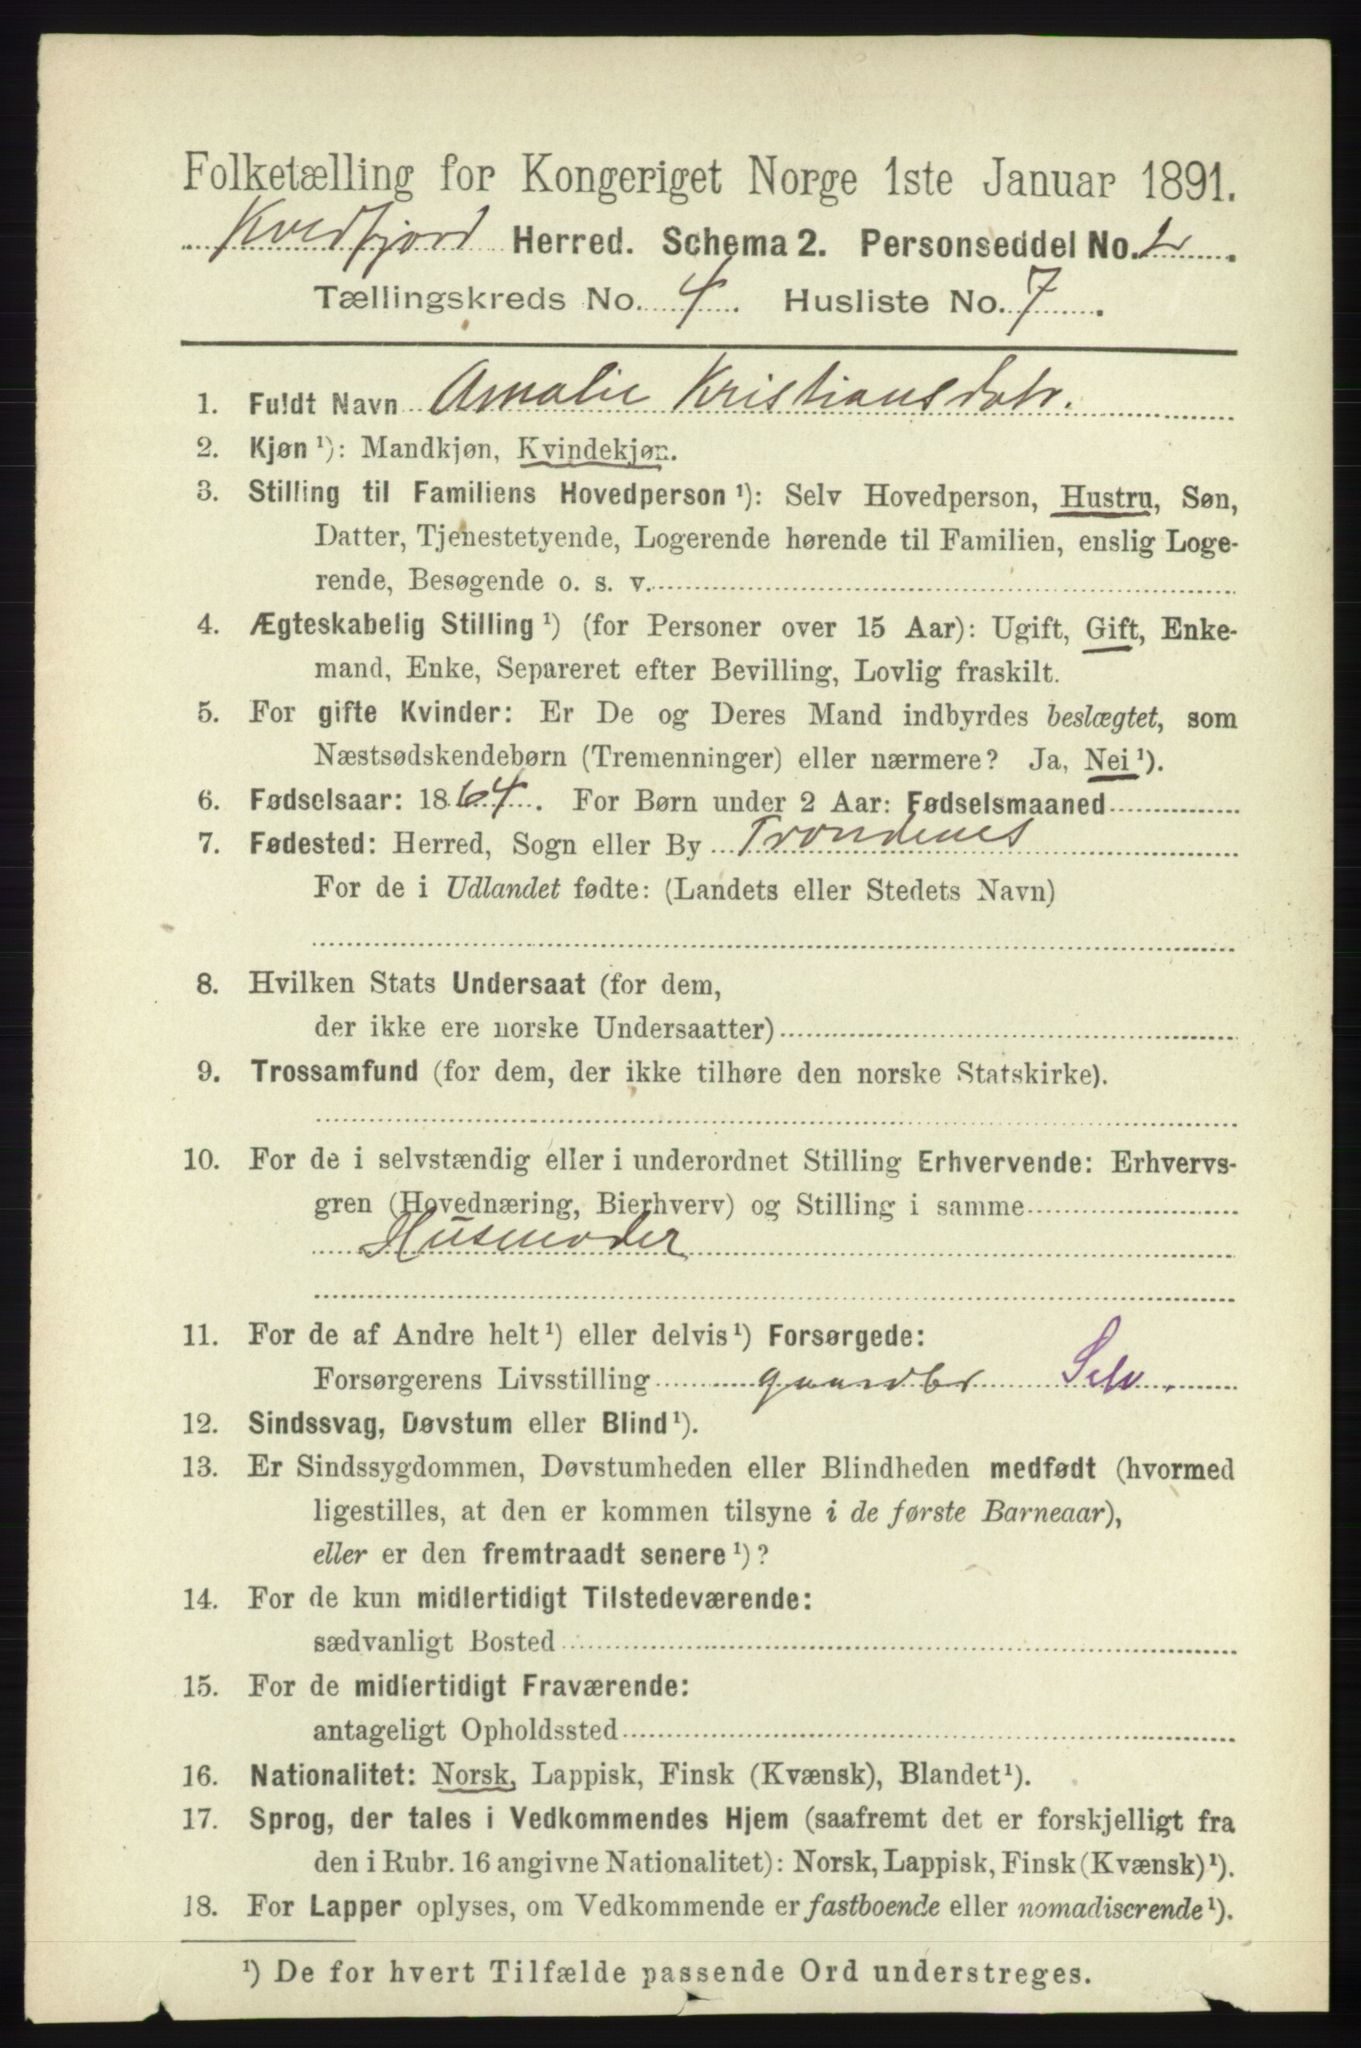 Folketælling for Kongeriget Norge 1ste Januar 1891.
Kvedfjord Herred. Schema 2. Personseddel No. 2.
Tællingskreds No. 4. Husliste No. 7.
1. Fuldt Navn Amalie Kristiansdatr.
2. Kjøn ¹): Mandkjøn, Kvindekjøn.
3. Stilling til Familiens Hovedperson ¹): Selv Hovedperson, Hustru, Søn,
Datter, Tjenestetyende, Logerende hørende til Familien, enslig Loge-
rende, Besøgende o. s. v.
4. Ægteskabelig Stilling ¹) (for Personer over 15 Aar): Ugift, Gift, Enke-
mand, Enke, Separeret efter Bevilling, Lovlig fraskilt.
5. For gifte Kvinder: Er De og Deres Mand indbyrdes beslægtet, som
Næstsødskendebørn (Tremenninger) eller nærmere? Ja, Nei ¹).
6. Fødselsaar: 1864. For Børn under 2 Aar: Fødselsmaaned
7. Fødested: Herred, Sogn eller By Trondenes
For de i Udlandet fødte: (Landets eller Stedets Navn)
8. Hvilken Stats Undersaat (for dem,
der ikke ere norske Undersaatter)
9. Trossamfund (for dem, der ikke tilhøre den norske Statskirke).
10. For de i selvstændig eller i underordnet Stilling Erhvervende: Erhvervs-
gren (Hovednæring, Bierhverv) og Stilling i samme
Husmoder
11. For de af Andre helt ¹) eller delvis ¹) Forsørgede:
Forsørgerens Livsstilling gaardbr Selv.
12. Sindssvag, Døvstum eller Blind ¹).
13. Er Sindssygdommen, Døvstumheden eller Blindheden medfødt (hvormed
ligestilles, at den er kommen tilsyne i de første Barneaar),
eller er den fremtraadt senere ¹)?
14. For de kun midlertidigt Tilstedeværende:
sædvanligt Bosted
15. For de midlertidigt Fraværende:
antageligt Opholdssted
16. Nationalitet: Norsk, Lappisk, Finsk (Kvænsk), Blandet ¹).
17. Sprog, der tales i Vedkommendes Hjem (saafremt det er forskjelligt fra
den i Rubr. 16 angivne Nationalitet): Norsk, Lappisk, Finsk (Kvænsk) ¹).
18. For Lapper oplyses, om Vedkommende er fastboende eller nomadiserende ¹).
¹) De for hvert Tilfælde passende Ord understreges.